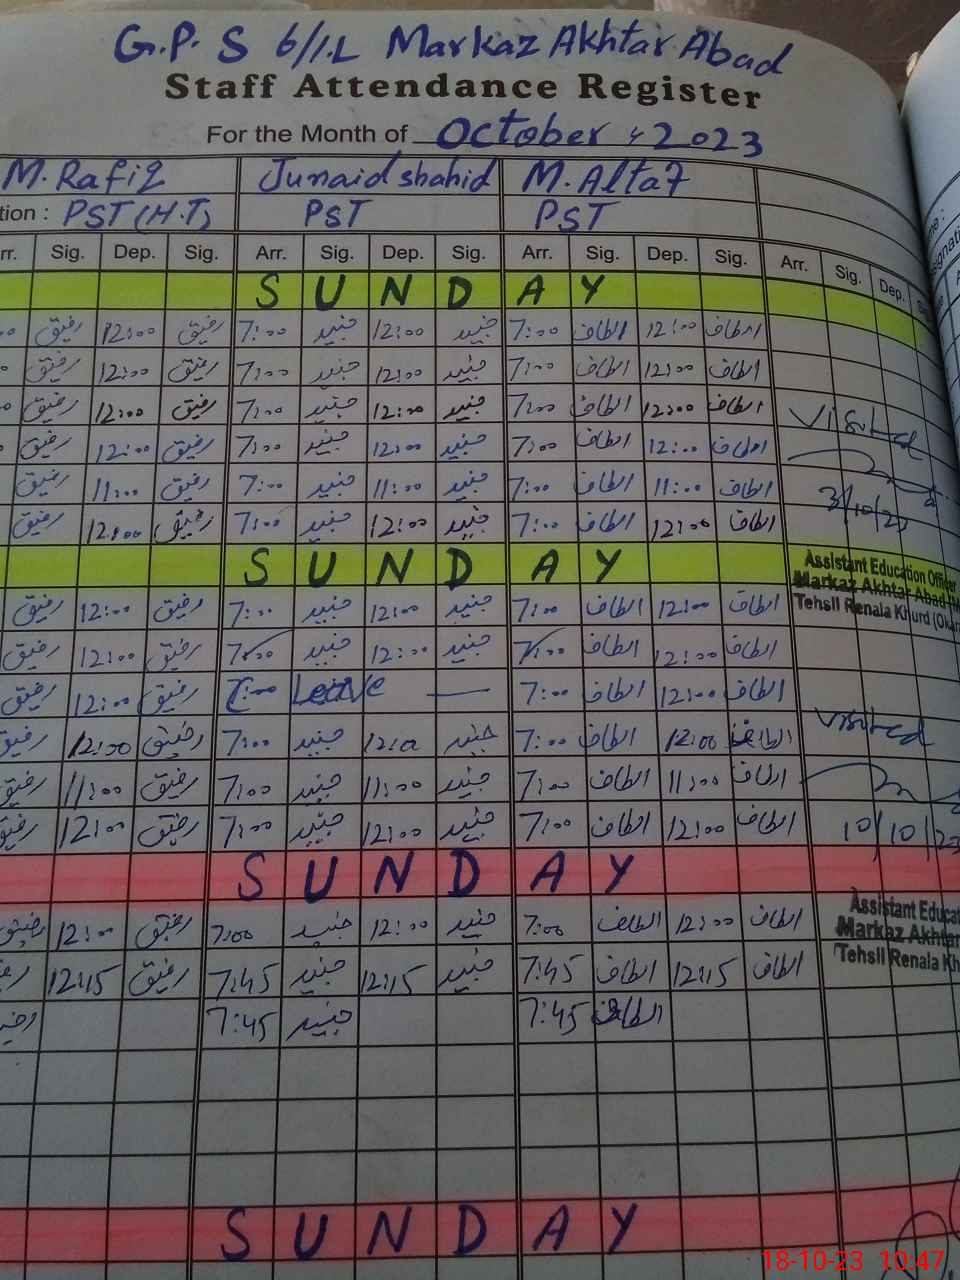 G.P.S 6/1.L Markaz Akhtar Abad
Staff Attendance Register
For the Month of October, 2023
M.Rafiq Junaid shahid M.Altaf
tion : PST (H.T) PST PST
rr. Sig. Dep. Sig. Arr. Sig. Dep. Sig. Arr. Sig. Dep. Sig. Arr. Sig. Dep.
SUNDAY
رفیق 12:00 رفیق 7:00 جنید 12:00 جنید 7:00 الطاف 12:00 الطاف
رفیق 12:00 رفیق 7:00 جنید 12:00 جنید 7:00 الطاف 12:00 الطاف
رفیق 12:00 رفیق 7:00 جنید 12:00 جنید 7:00 الطاف 12:00 الطاف
Visited
رفیق 12:00 رفیق 7:00 جنید 12:00 جنید 7:00 الطاف 12:00 الطاف
رفیق 11:00 رفیق 7:00 جنید 11:00 جنید 7:00 الطاف 11:00 الطاف
3/10/23
رفیق 12:00 رفیق 7:00 جنید 12:00 جنید 7:00 الطاف 12:00 الطاف
SUNDAY
Assistant Education Officer
Markaz Akhtar Abad
Tehsil Renala Khurd (Okar
رفیق 12:00 رفیق 7:00 جنید 12:00 جنید 7:00 الطاف 12:00 الطاف
رفیق 12:00 رفیق 7:00 جنید 12:00 جنید 7:00 الطاف 12:00 الطاف
رفیق 12:00 رفیق 7:00 Leave — 7:00 الطاف 12:00 الطاف
Visited
رفیق 12:00 رفیق 7:00 جنید 12:0 جنید 7:00 الطاف 12:00 الطاف
رفیق 11:00 رفیق 7:00 جنید 11:00 جنید 7:00 الطاف 11:00 الطاف
رفیق 12:00 رفیق 7:00 جنید 12:00 جنید 7:00 الطاف 12:00 الطاف
10/10/23
SUNDAY
Assistant Educat
Markaz Akhtar
Tehsil Renala Kh
رفیق 12:00 رفیق 7:00 جنید 12:00 جنید 7:00 الطاف 12:00 الطاف
12:15 رفیق 7:45 جنید 12:15 جنید 7:45 الطاف 12:15 الطاف
7:45 جنید 7:45 الطاف
SUNDAY
18-10-23 10:47